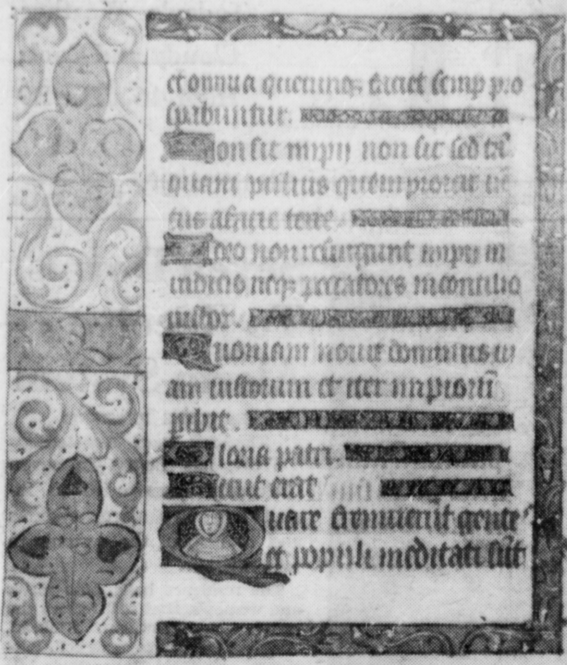 et omnia quecunq; faciet semp pro
spabuntur.
Non sic impij non sic sed tā
quam puluis quem proicit uē
tus a facie terre.
Ideo non resurgunt impij in
iudicio neq; peccatores in consilio
iustor.
Quoniam nouit dominus ui
am iustorum et iter impiorū
pibit.
Gloria patri.
Sicut erat
Quare fremuerūt gente
et populi meditati sūt